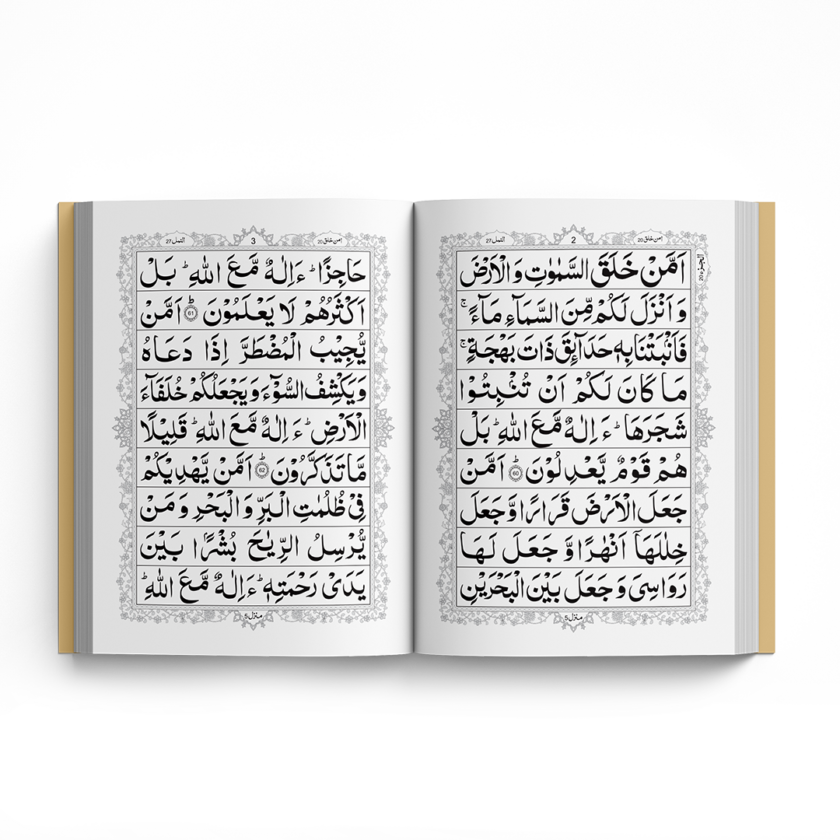 النمل 27
2
امن خلق 20
الجزء 20
اَمَّنْ خَلَقَ السَّمٰوٰتِ وَالْاَرْضَ
وَاَنْزَلَ لَكُمْ مِّنَ السَّمَآءِ مَآءً ۚ
فَاَنْۢبَتْنَا بِهٖ حَدَآئِقَ ذَاتَ بَهْجَةٍ ۚ
مَا كَانَ لَكُمْ اَنْ تُنْۢبِتُوْا
شَجَرَهَا ؕ ءَاِلٰهٌ مَّعَ اللّٰهِ ؕ بَلْ
هُمْ قَوْمٌ يَّعْدِلُوْنَ ؕ 60 اَمَّنْ
جَعَلَ الْاَرْضَ قَرَارًا وَّجَعَلَ
خِلٰلَهَآ اَنْهٰرًا وَّجَعَلَ لَهَا
رَوَاسِيَ وَجَعَلَ بَيْنَ الْبَحْرَيْنِ
منزل 5
النمل 27
3
امن خلق 20
حَاجِزًا ؕ ءَاِلٰهٌ مَّعَ اللّٰهِ ؕ بَلْ
اَكْثَرُهُمْ لَا يَعْلَمُوْنَ ؕ 61 اَمَّنْ
يُّجِيْبُ الْمُضْطَرَّ اِذَا دَعَاهُ
وَيَكْشِفُ السُّوْٓءَ وَيَجْعَلُكُمْ خُلَفَآءَ
الْاَرْضِ ؕ ءَاِلٰهٌ مَّعَ اللّٰهِ ؕ قَلِيْلًا
مَّا تَذَكَّرُوْنَ ؕ 62 اَمَّنْ يَّهْدِيْكُمْ
فِيْ ظُلُمٰتِ الْبَرِّ وَالْبَحْرِ وَمَنْ
يُّرْسِلُ الرِّيٰحَ بُشْرًۢا بَيْنَ
يَدَيْ رَحْمَتِهٖ ؕ ءَاِلٰهٌ مَّعَ اللّٰهِ ؕ
منزل 5